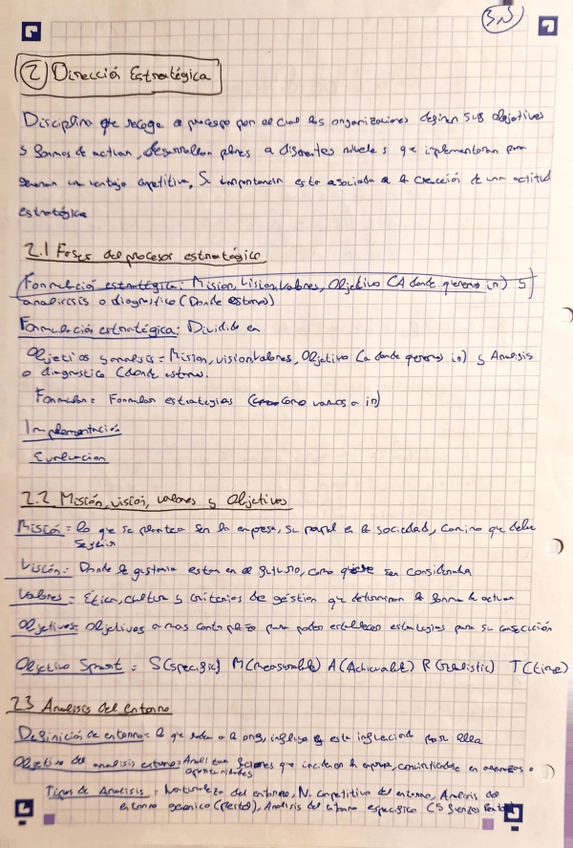 ② Dirección Estratégica
Disciplina que recoge el proceso por el cual las organizaciones definen sus objetivos
y formas de actuar, desarrollan planes a diferentes niveles que implementaran para
generar un ventaja competitiva. Su importancia esta asociada a la creación de una actitud
estratégica
2.1 Fases del proceso estratégico
Formulación estratégica: Mision, Vision, Valores, Objetivo (A donde queremos ir) y
analisis o diagnostico (Donde estamos)
Formulación estratégica: Dividido en
Objetivos y analisis = Mision, vision, valores, Objetivo (a donde queremos ir) y Analisis
o diagnostico (donde estamos.
Formular = Formular estrategias (como vamos a ir)
Implementación
Evaluacion
2.2 Misión, visión, valores y Objetivos
Misión = lo que se plantea ser la empresa, su papel en la sociedad, camino que debe
seguir
Visión = Donde le gustaria estar en el futuro, como quiere ser considerada
Valores = Etica, cultura y criterios de géstion que determinan la forma de actuar
Objetivos: Objetivos a mas corto plazo para poder establecer estrategias para su consecución
Objetivo Smart = S(specific) M(measurable) A(Achievable) R(realistic) T(time)
2.3 Analisis del entorno
Definición de entorno = lo que rodea a la org, influye y esta influenciada por ella
Objetivo del analisis externo = Analizar factores que inciden en la empresa, convirtiendose en amenazas o
oportunidades
Tipos de Analisis: Naturaleza del entorno, N. competitiva del entorno, Analisis del
entorno generico (Pestel), Analisis del entorno especifico (5 fuerzas Porter)